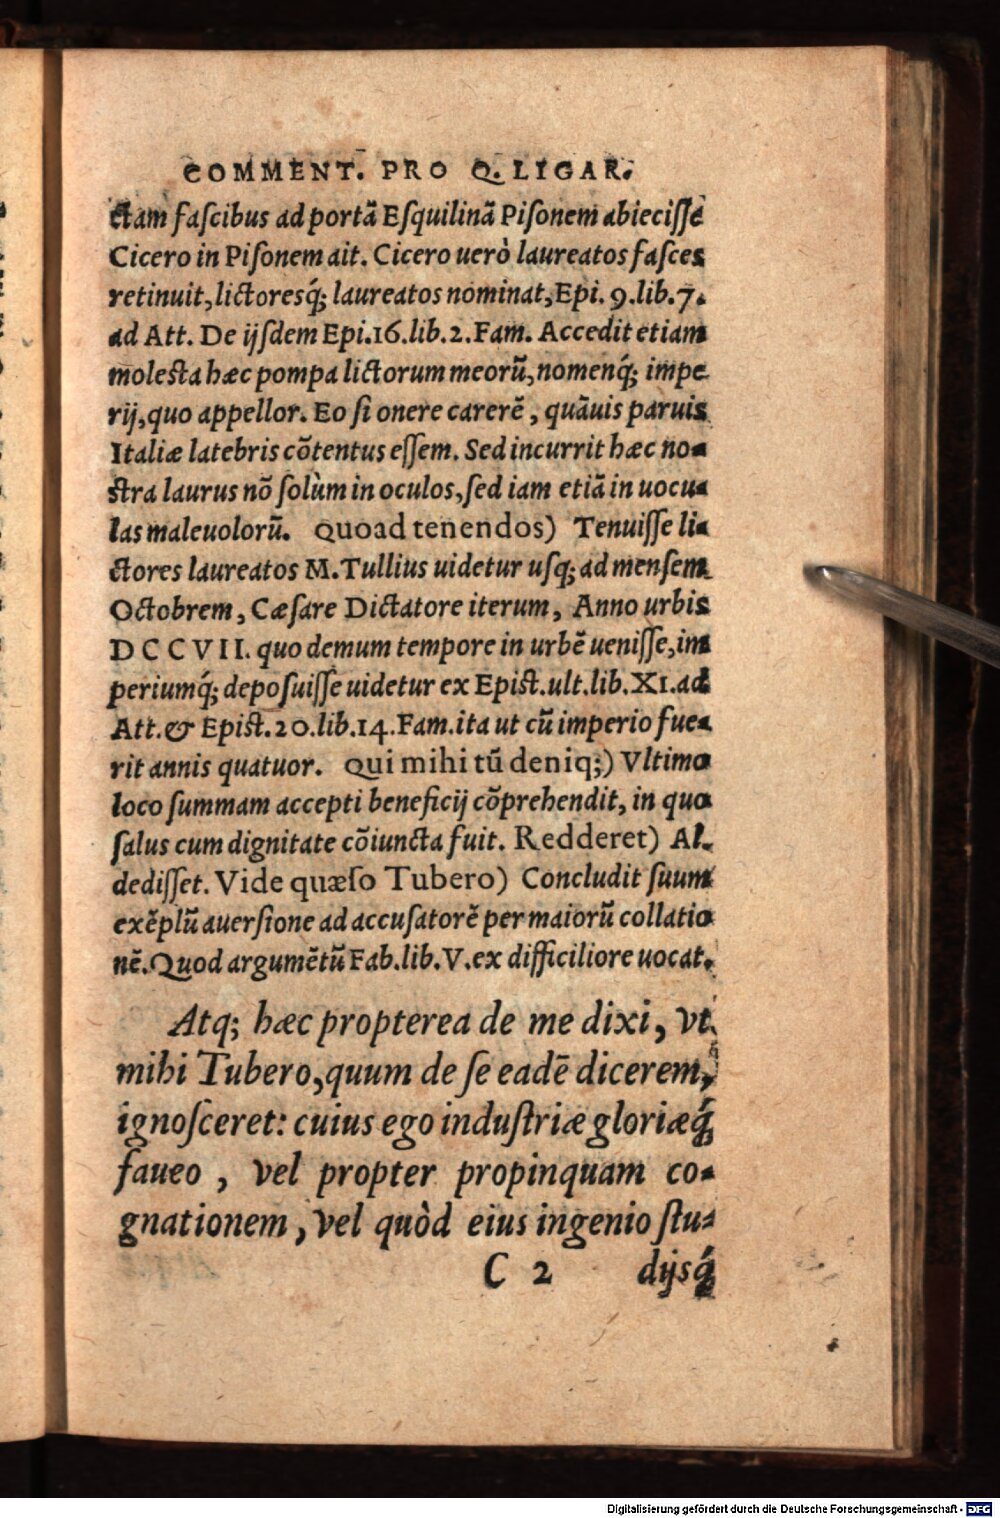 COMMENT. PRO Q. LIGAR.
ctam fascibus ad portā Esquilinā Pisonem abiecisse
Cicero in Pisonem ait. Cicero uerò laureatos fasces
retinuit, lictoresq́; laureatos nominat, Epi. 9. lib. 7.
ad Att. De ijsdem Epi. 16. lib. 2. Fam. Accedit etiam
molesta hæc pompa lictorum meorũ, nomenq́; impe
rij, quo appellor. Eo si onere carerē, quãuis paruis
Italiæ latebris cõtentus essem. Sed incurrit hæc no-
stra laurus nõ solùm in oculos, sed iam etiã in uocu-
las maleuolorũ. Quoad tenendos) Tenuisse li-
ctores laureatos M. Tullius uidetur usq; ad mensem
Octobrem, Cæsare Dictatore iterum, Anno urbis
DCCVII. quo demum tempore in urbē uenisse, im
periumq́; deposuisse uidetur ex Epist. ult. lib. XI. ad
Att. & Epist. 20. lib. 14. Fam. ita ut cũ imperio fue-
rit annis quatuor. Qui mihi tũ deniq;) Vltimo
loco summam accepti beneficij cõprehendit, in quo
salus cum dignitate cõiuncta fuit. Redderet) Al.
dedisset. Vide quæso Tubero) Concludit suum
exēplũ auersione ad accusatorē per maiorũ collatio
nē. Quod argumētũ Fab. lib. V. ex difficiliore uocat.
Atq; hæc propterea de me dixi, vt
mihi Tubero, quum de se eadē dicerem,
ignosceret: cuius ego industriæ gloriæq́;
faueo, vel propter propinquam co-
gnationem, vel quòd eius ingenio stu-
C 2 dijsq́;
Digitalisierung gefördert durch die Deutsche Forschungsgemeinschaft - DFG